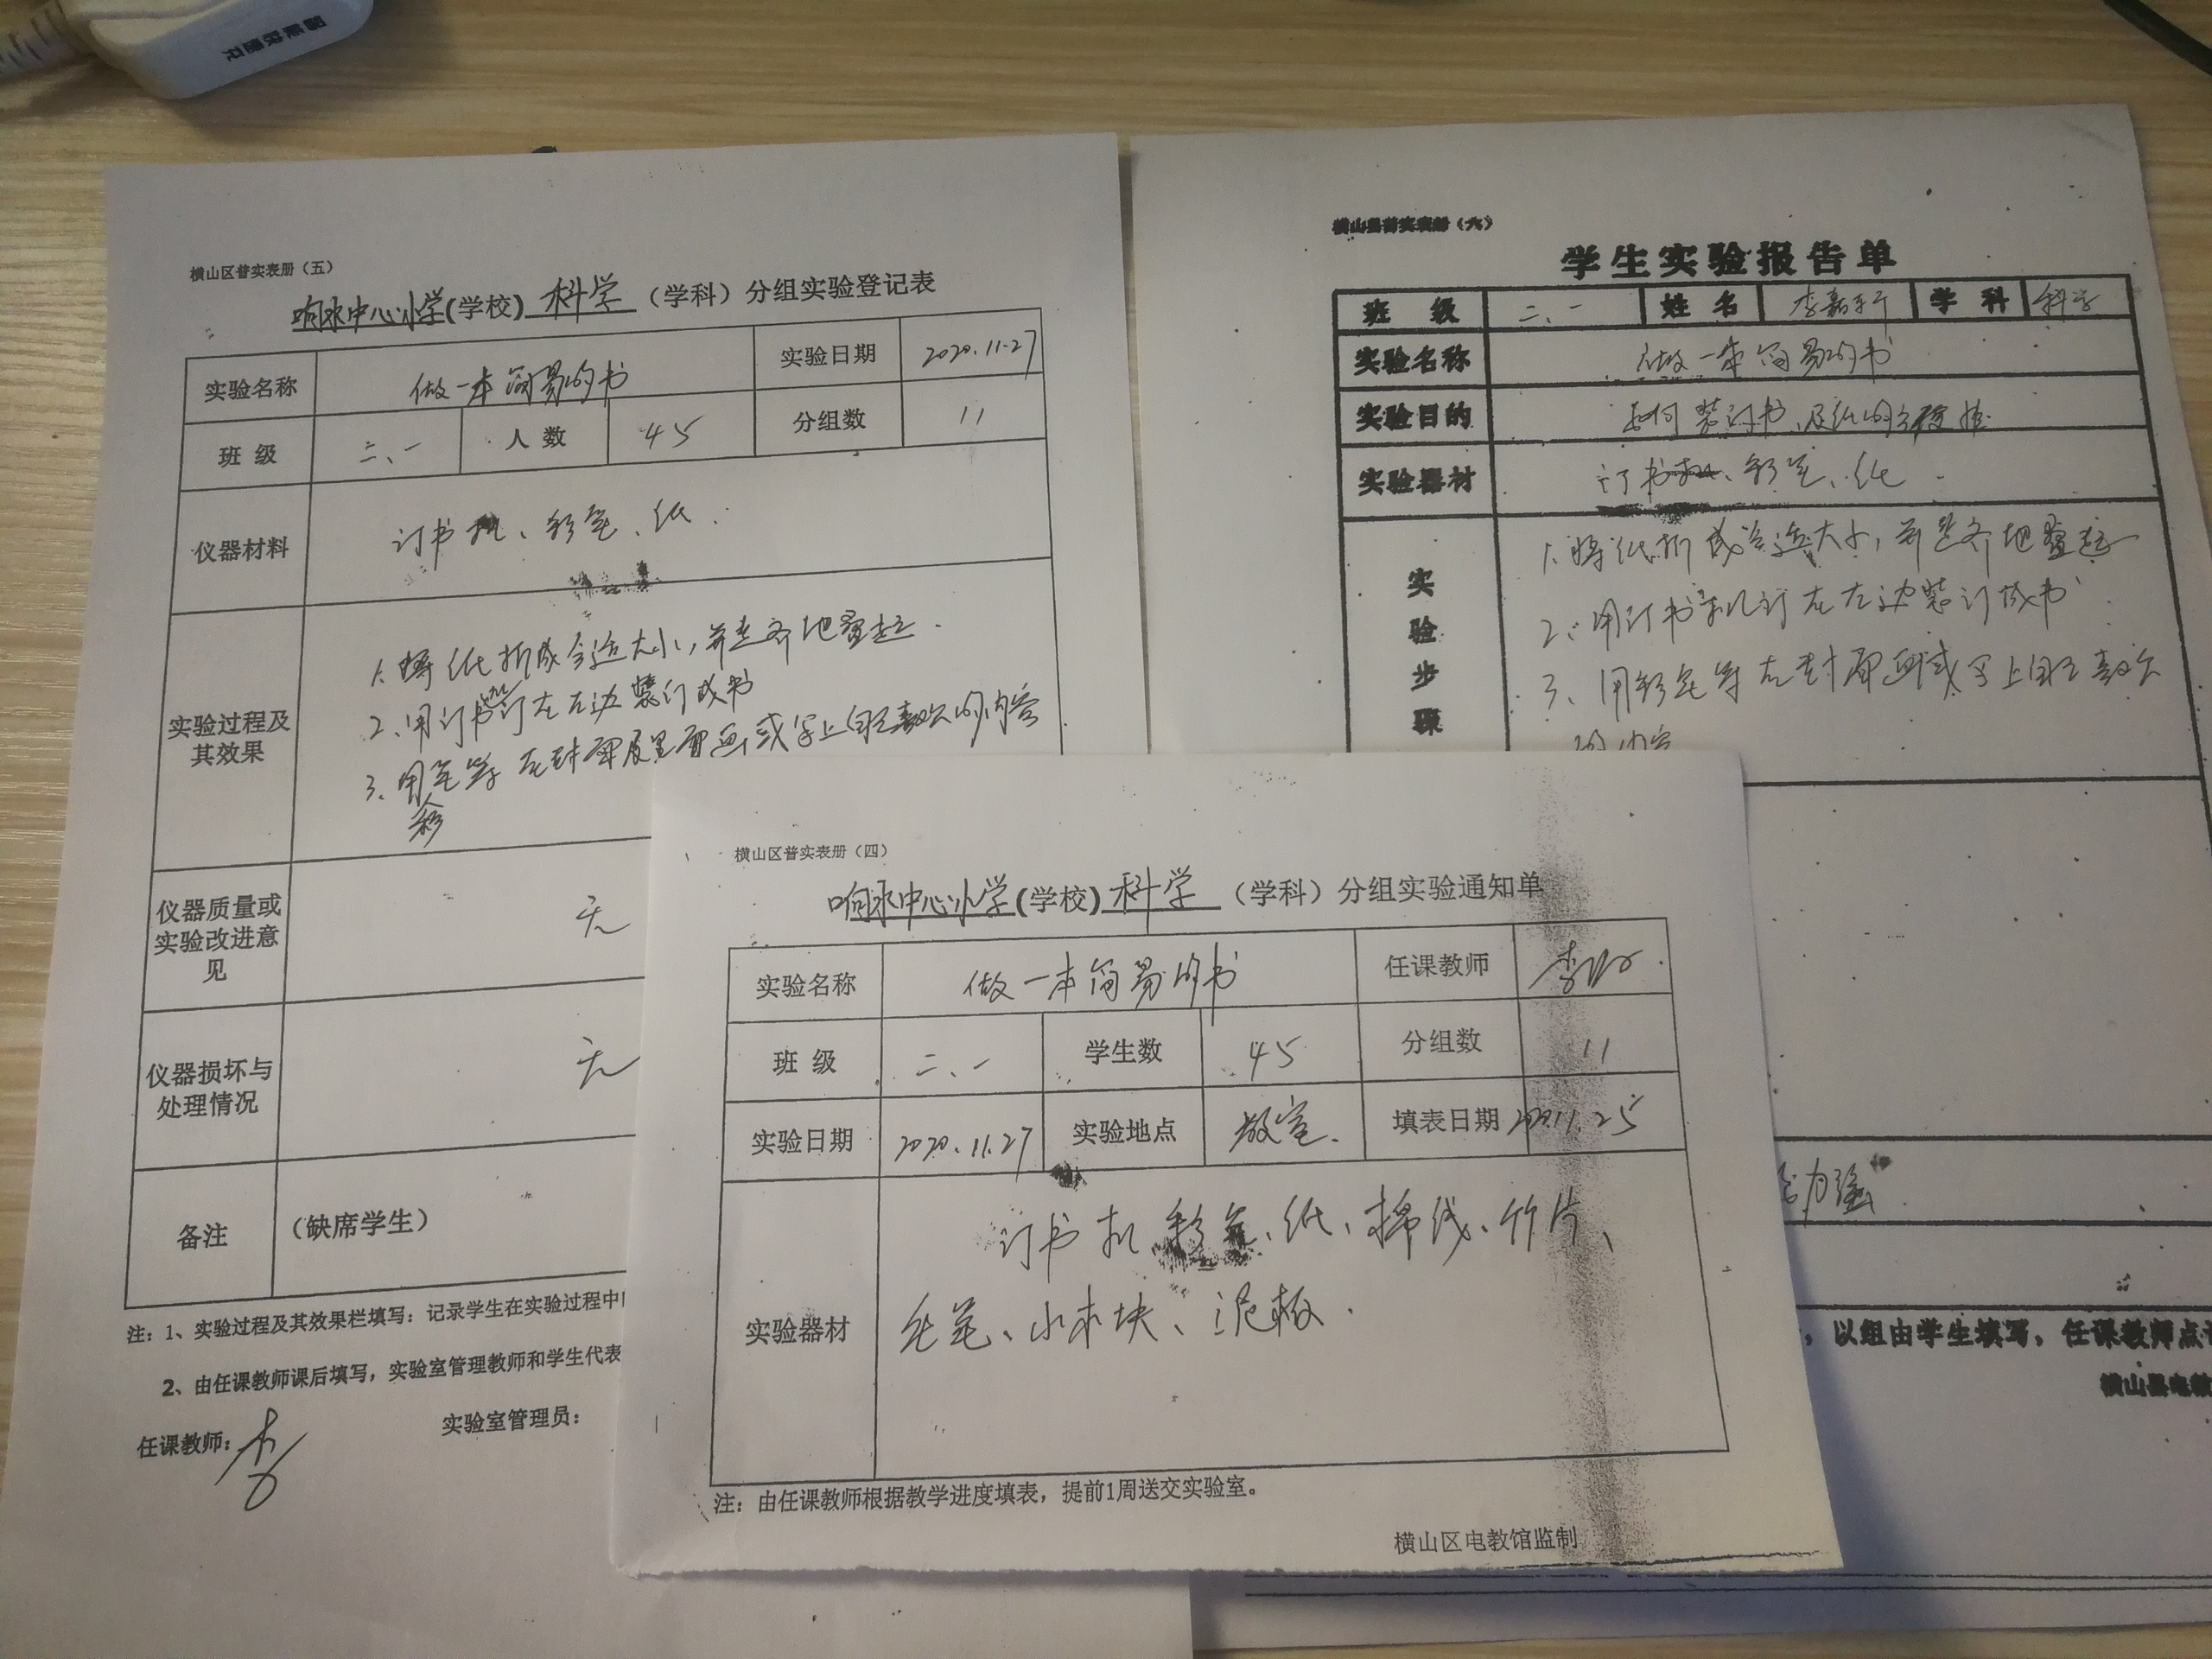 横山区普实表册（五）
响水中心小学(学校) 科学 （学科）分组实验登记表
实验名称 做一本简易的书 实验日期 2020.11.27
班 级 二、一 人 数 45 分组数 11
仪器材料 订书机、彩笔、纸.
实验过程及其效果
1. 将纸折成合适大小，并整齐地叠起.
2、用订书机订在左边装订成书
3、用彩笔等在封面及里面画或写上自己喜欢的内容
仪器质量或
实验改进意
见
无
仪器损坏与
处理情况
无
备注 （缺席学生）
注：1、实验过程及其效果栏填写：记录学生在实验过程中
2、由任课教师课后填写，实验室管理教师和学生代表
任课教师：李
实验室管理员：
横山县普实表册（六）
学生实验报告单
班 级 二、一 姓 名 李嘉 学 科 科学
实验名称 做一本简易的书
实验目的 如何装订书、及纸的
实验器材 订书机、彩笔、纸
实验步骤
1. 将纸折成合适大小，并整齐地叠起
2、用订书机订在左边装订成书
3、用彩笔等在封面画或写上自己喜欢
的内容
力强
，以组由学生填写，任课教师点
横山县电教
横山区普实表册（四）
响水中心小学(学校) 科学 （学科）分组实验通知单
实验名称 做一本简易的书 任课教师 李
班 级 二、一 学生数 45 分组数 11
实验日期 2020.11.27 实验地点 教室. 填表日期 2020.11.25
实验器材
订书机、彩笔、纸、棉线、竹片、
毛笔、小木块、泥板.
注：由任课教师根据教学进度填表，提前1周送交实验室。
横山区电教馆监制